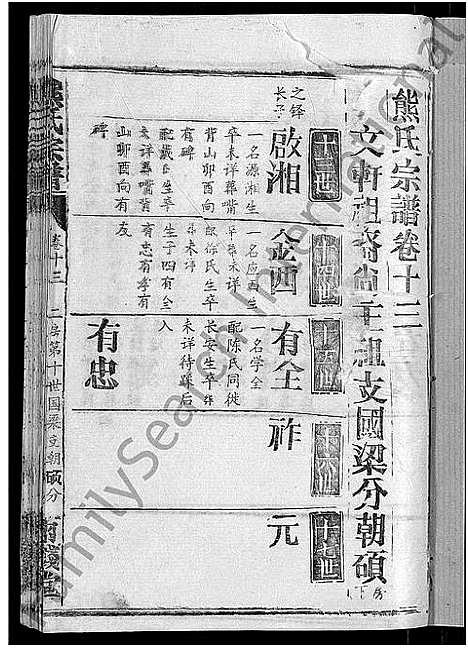 熊氏宗譜卷十三
文軒祖裔尚主祖支國梁分朝碩
下房
十三世
十四世
十五世
十六世
十七世
之鐸
長子
啟湘
一名源湘生
卒未详葬嘴
背山卯酉向
有碑
配戴氏生卒
未详葬嘴背
山卯酉向有
碑
金酉
一名应酉生
卒葬未详
配徐氏生卒
葬未详
生子四有全
有忠有孝有
友
有全
一名学全
配陈氏同徙
长安生卒葬
未详待归后
入
祚
元
有忠
熊氏宗譜
卷十三
二房第十世国梁支朝碩分
FamilySearch International